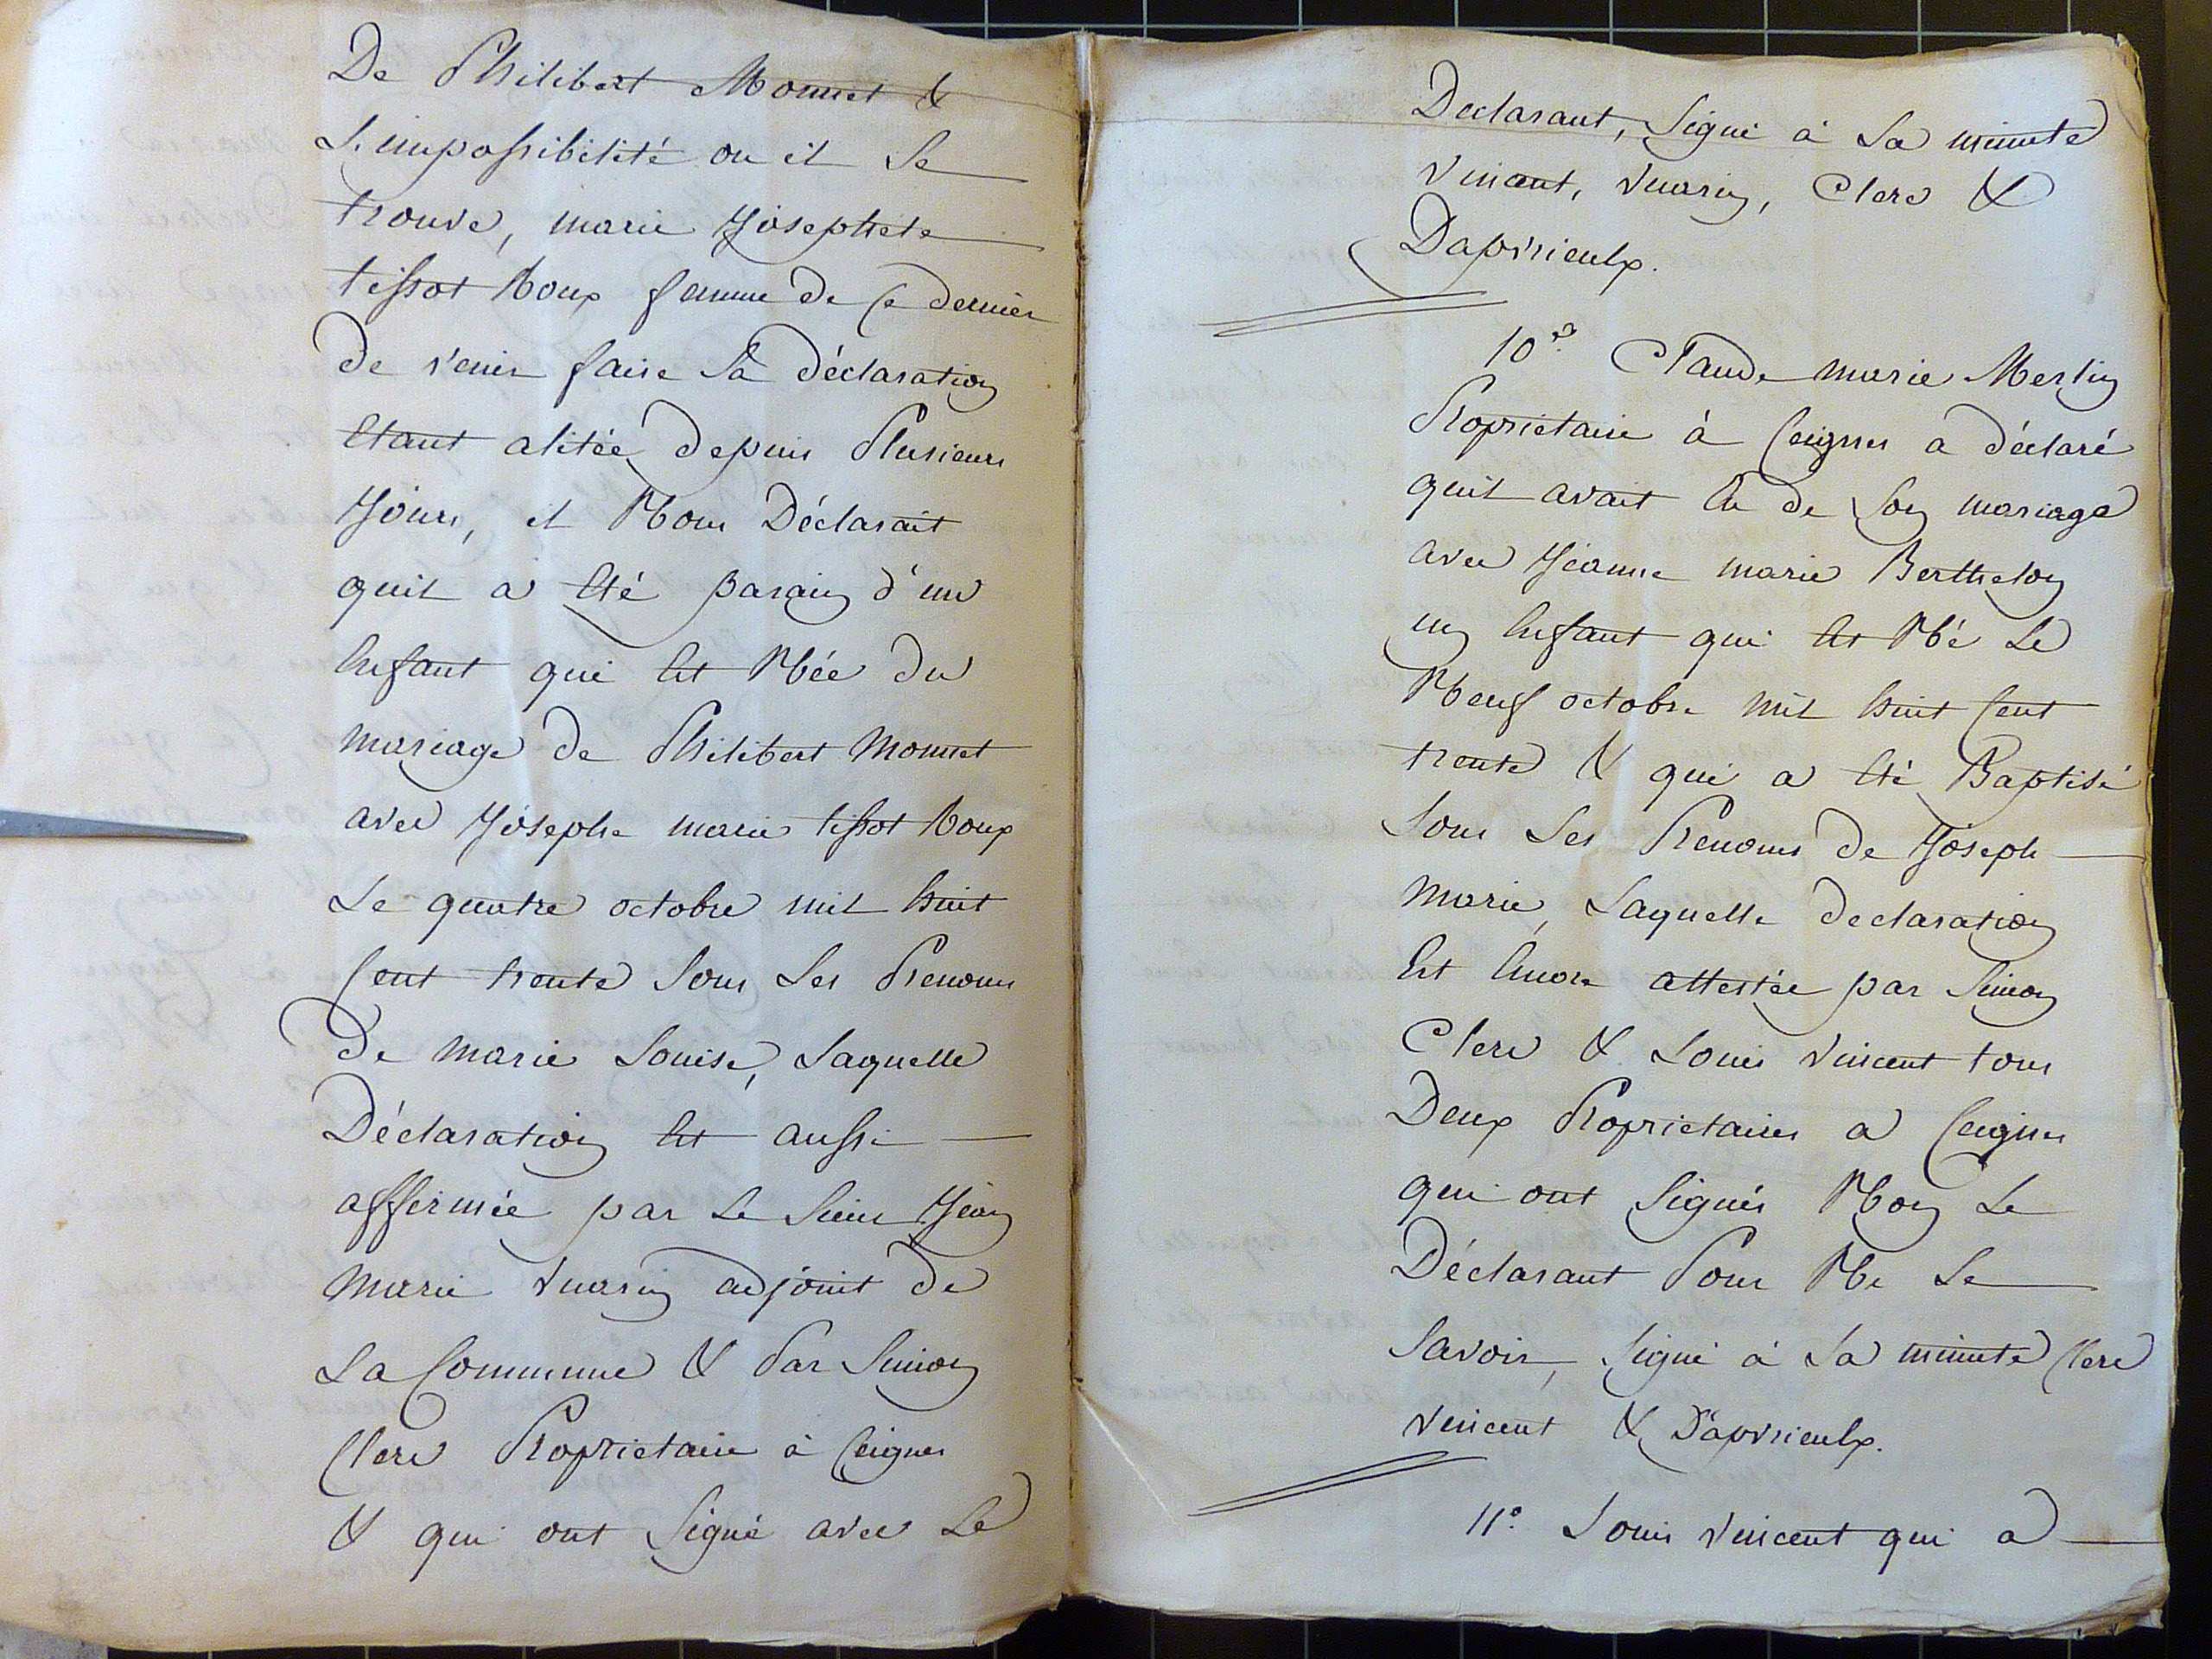 De Philibert Monnet &
L'impossibilité ou il se
trouve, marie Josephete
tissot Roux femme de ce dernier
de venir faire sa déclaration
Etant alitée depuis Plusieurs
Jours, il Nous Déclarait
quil a Eté parain d'un
Enfant qui Est Née du
mariage de Philibert Monnet
avec Josephe marie tissot Roux
Le quatre octobre mil huit
Cent trente sous Les Prenoms
De marie Louise, Laquelle
Déclaration Est aussi
affermée par Le sieur Jean
Marie Vuarin adjoint de
La Commune & Par Simon
Clerc Proprietaire à Ceignes
& qui ont Signé avec Le
Declarant, Signé à La minute
Vincent, Vuarin, Clerc &
Dapvrieulx.
10° Claude marie Merlin
Proprietaire à Ceignes a déclaré
quil avait Eu de Son mariage
avec Jeanne marie Berthelon
un Enfant qui Est Né Le
Neuf octobre mil huit Cent
trente & qui a Eté Baptisé
Sous Les Prenoms de Joseph
Marie, Laquelle declaration
Est Encore attestée par Simon
Clerc & Louis Vincent tous
Deux Proprietaires a Ceignes
qui ont Signés Non Le
Déclarant Pour Ne Le
Savoir, Signé à La minute Clerc
Vincent & Dapvrieulx.
11° Louis Vincent qui a